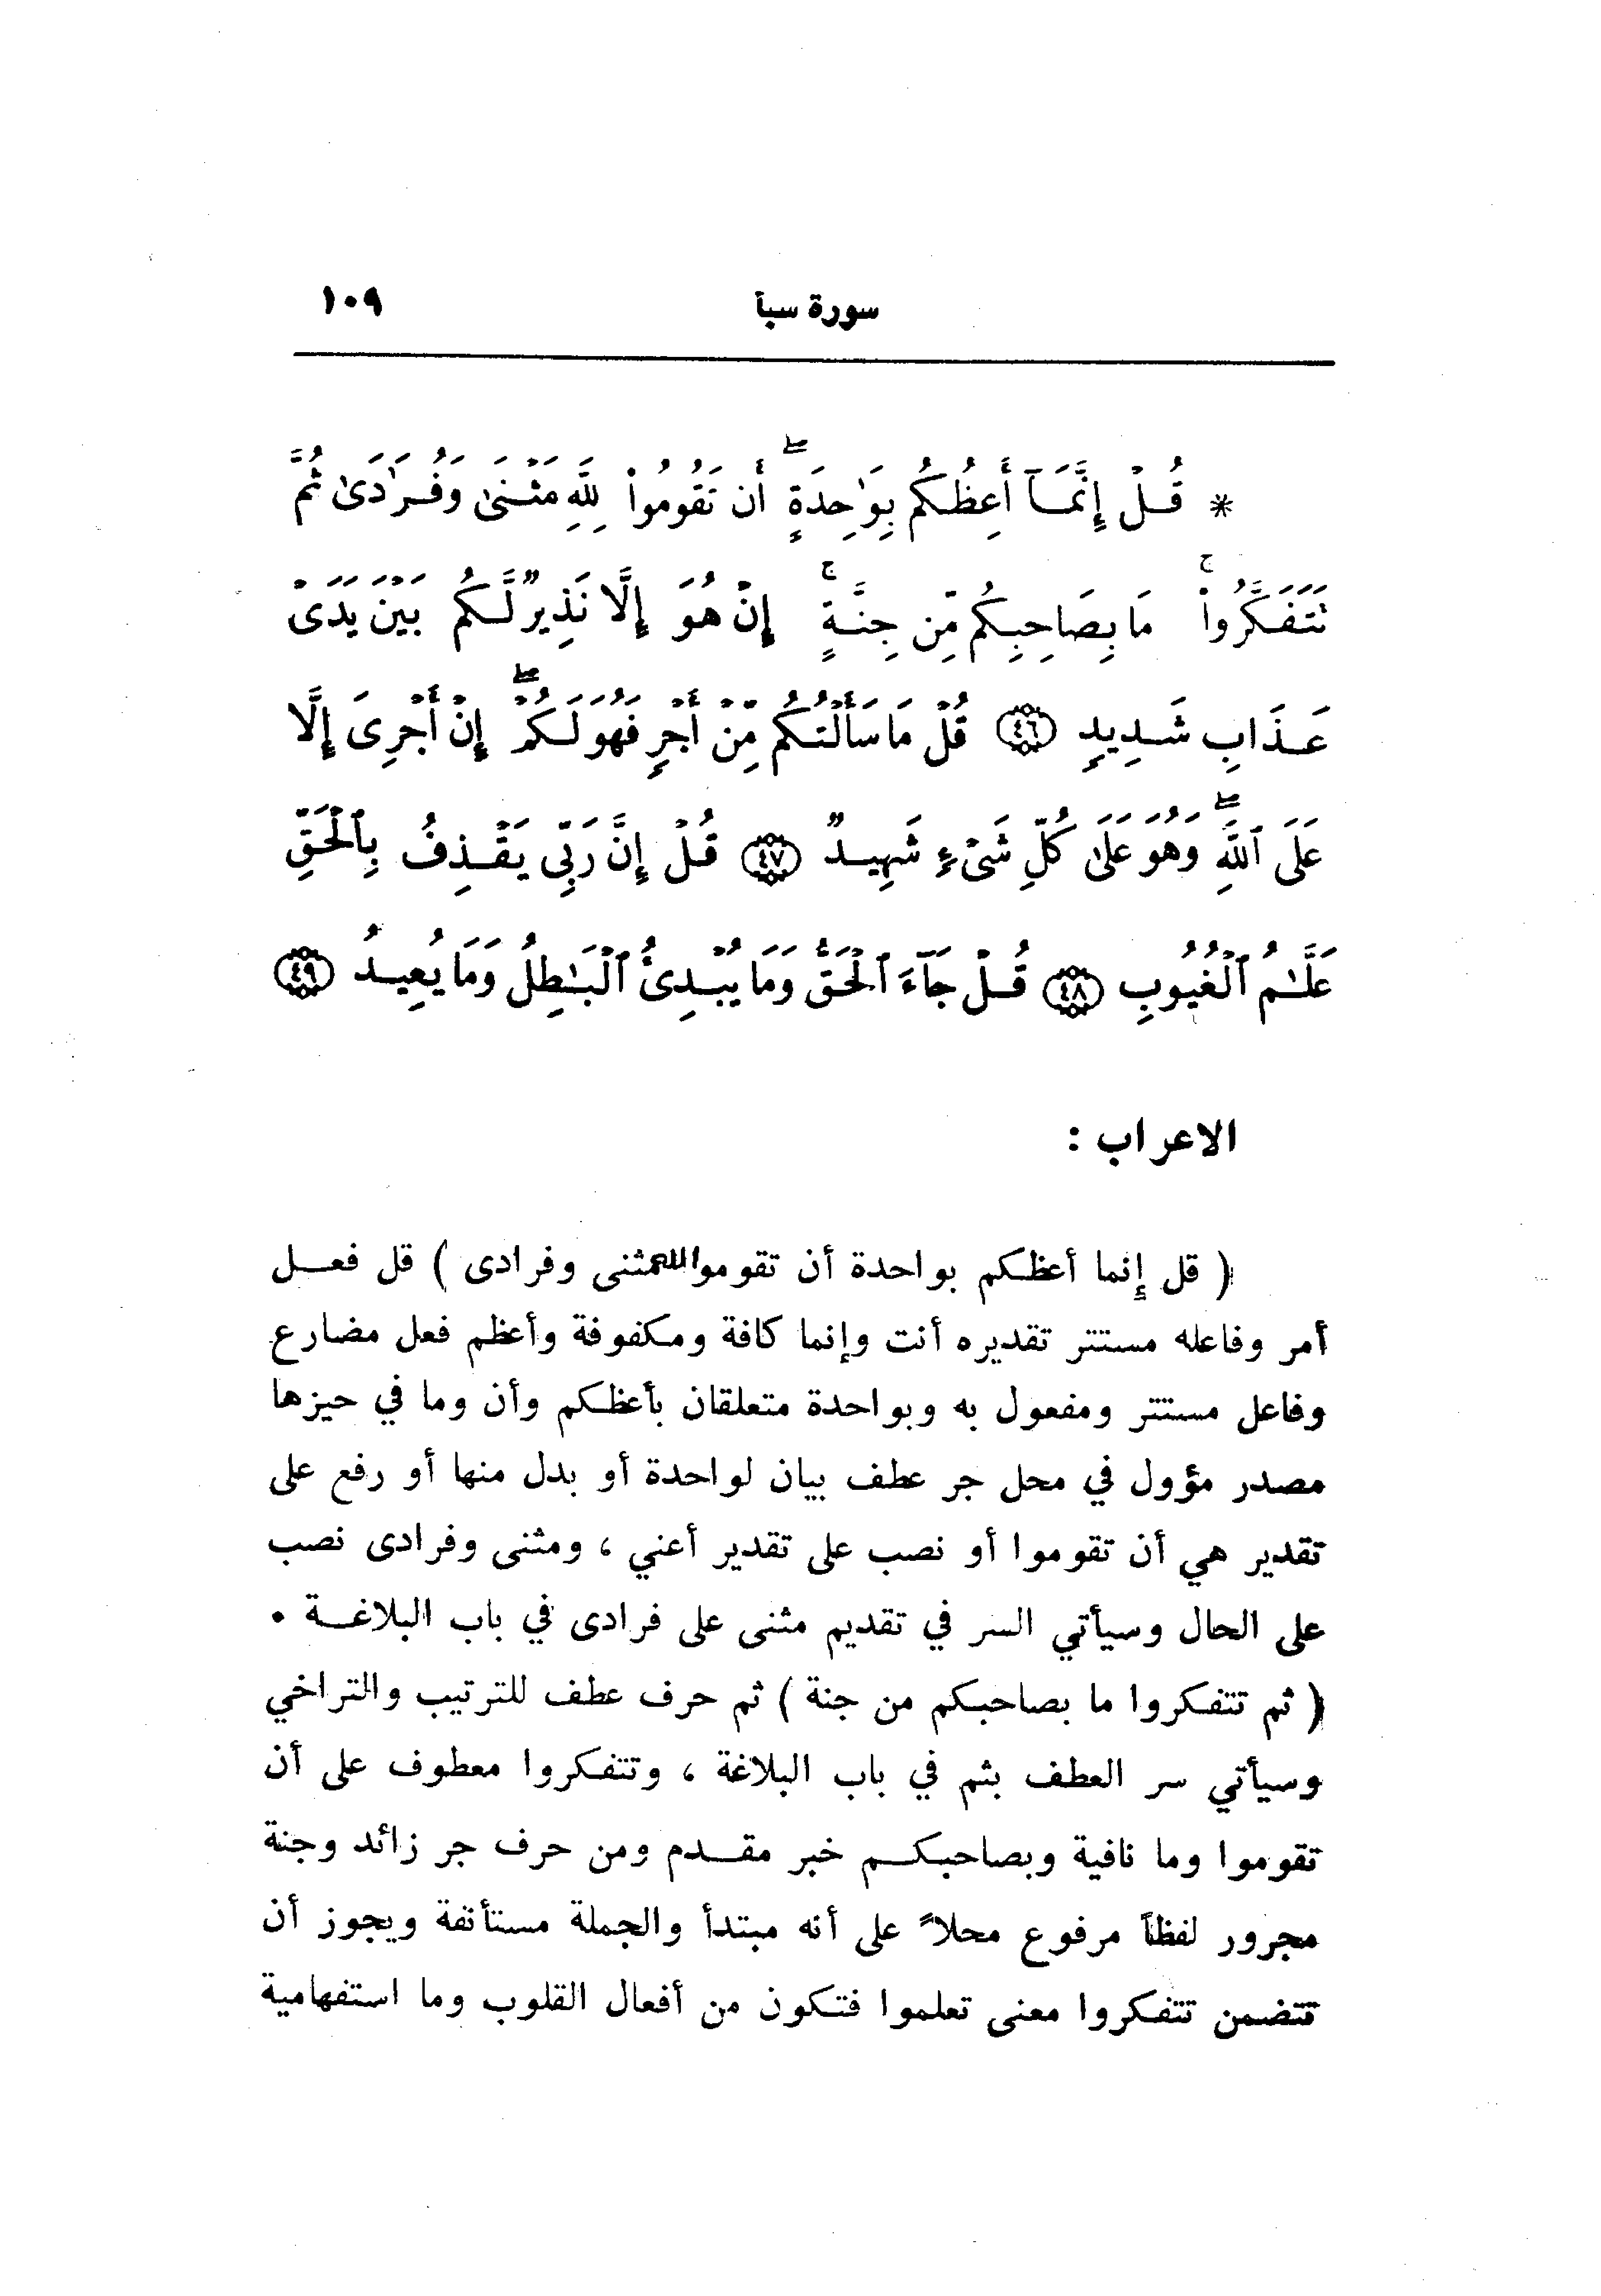 سورة سبأ ١٠٩
* قُلْ إِنَّمَآ أَعِظُكُم بِوَٰحِدَةٍ ۖ أَن تَقُومُوا۟ لِلَّهِ مَثْنَىٰ وَفُرَٰدَىٰ ثُمَّ
تَتَفَكَّرُوا۟ ۚ مَا بِصَاحِبِكُم مِّن جِنَّةٍ ۚ إِنْ هُوَ إِلَّا نَذِيرٌ لَّكُم بَيْنَ يَدَىْ
عَذَابٍ شَدِيدٍ ﴿٤٦﴾ قُلْ مَا سَأَلْتُكُم مِّنْ أَجْرٍ فَهُوَ لَكُمْ ۖ إِنْ أَجْرِىَ إِلَّا
عَلَى ٱللَّهِ ۖ وَهُوَ عَلَىٰ كُلِّ شَىْءٍ شَهِيدٌ ﴿٤٧﴾ قُلْ إِنَّ رَبِّى يَقْذِفُ بِٱلْحَقِّ
عَلَّـٰمُ ٱلْغُيُوبِ ﴿٤٨﴾ قُلْ جَآءَ ٱلْحَقُّ وَمَا يُبْدِئُ ٱلْبَـٰطِلُ وَمَا يُعِيدُ ﴿٤٩﴾
الاعراب :
( قل إنما أعظكم بواحدة أن تقوموا لله مثنى وفرادى ) قل فعل
أمر وفاعله مستتر تقديره أنت وإنما كافة ومكفوفة وأعظم فعل مضارع
وفاعل مستتر ومفعول به وبواحدة متعلقان بأعظكم وأن وما في حيزها
مصدر مؤول في محل جر عطف بيان لواحدة أو بدل منها أو رفع على
تقدير هي أن تقوموا أو نصب على تقدير أعني ، ومثنى وفرادى نصب
على الحال وسيأتي السر في تقديم مثنى على فرادى في باب البلاغة •
( ثم تتفكروا ما بصاحبكم من جنة ) ثم حرف عطف للترتيب والتراخي
وسيأتي سر العطف بثم في باب البلاغة ، وتتفكروا معطوف على أن
تقوموا وما نافية وبصاحبكم خبر مقدم ومن حرف جر زائد وجنة
مجرور لفظاً مرفوع محلاً على أنه مبتدأ والجملة مستأنفة ويجوز أن
تتضمن تتفكروا معنى تعلموا فتكون من أفعال القلوب وما استفهامية